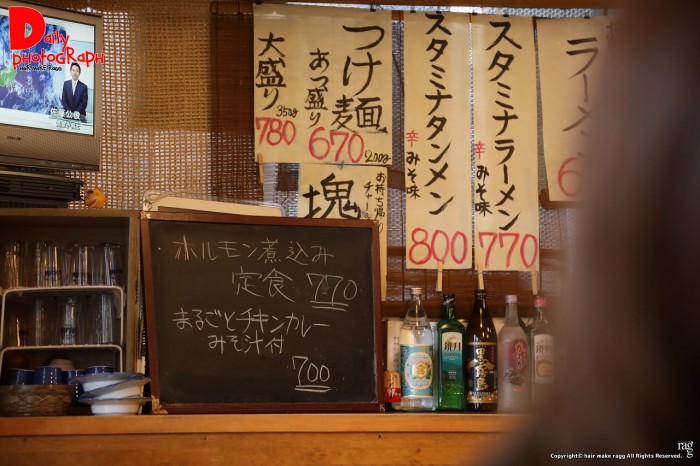 Daily
PHOTOGRAPH
HAIR MAKE RAGG
佐藤公俊
大盛り
350g
780
つけ麺
あつ盛り
670
200g
スタミナタンメン
辛みそ味
800
スタミナラーメン
辛みそ味
770
ラーメ
塊
お持ち帰り
チャー
ホルモン煮込み
定食 770
まるごとチキンカレー
みそ汁付
700
鏡月
黒霧島
鏡月
ragg
Copyright© hair make ragg All Rights Reserved.